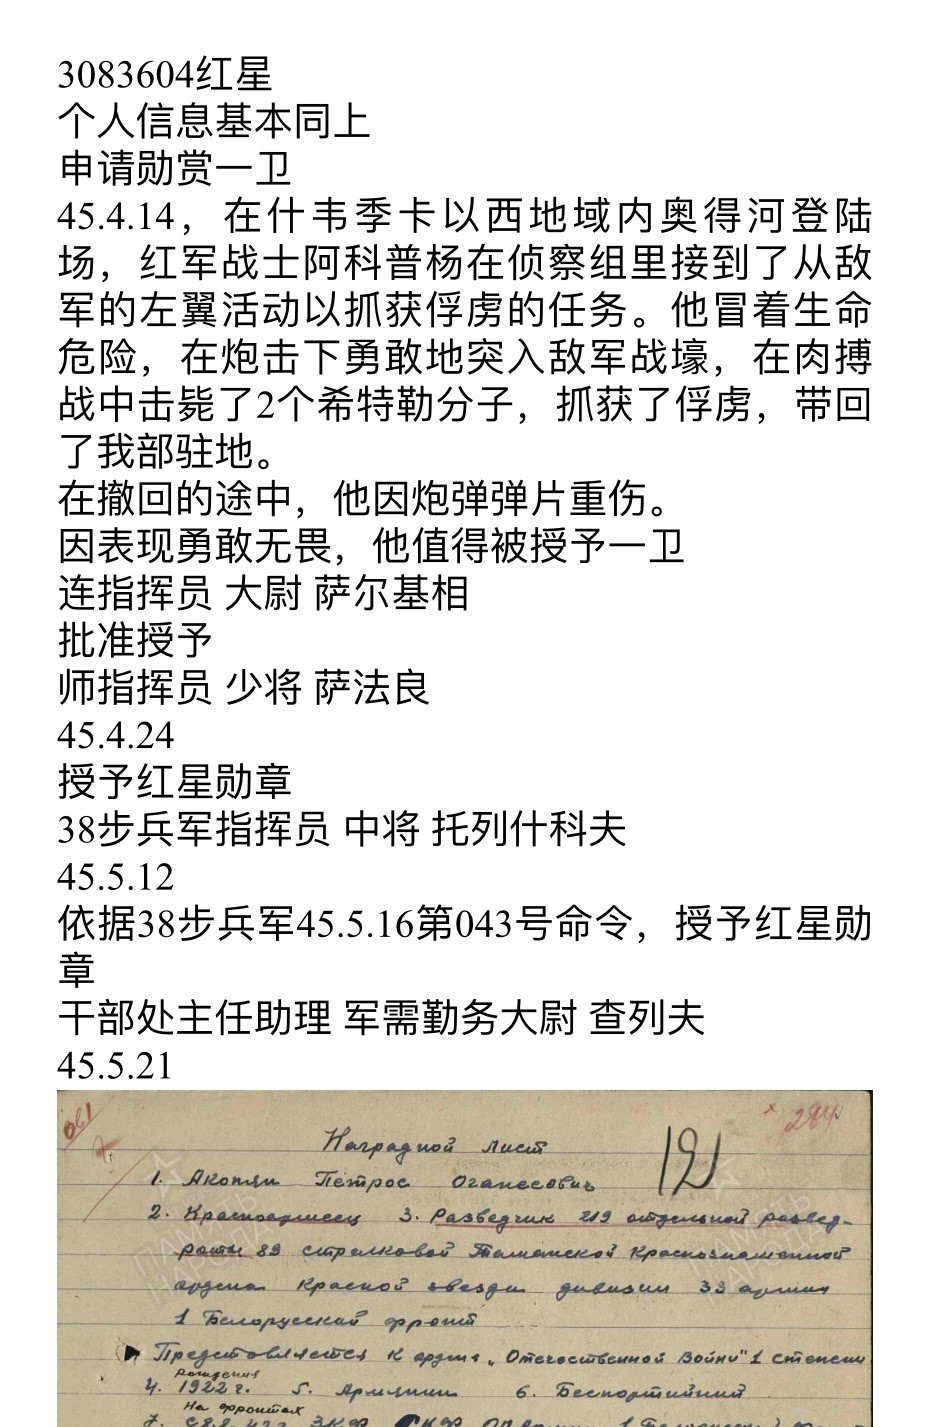 3083604红星
个人信息基本同上
申请勋赏一卫
45.4.14，在什韦季卡以西地域内奥得河登陆
场，红军战士阿科普杨在侦察组里接到了从敌
军的左翼活动以抓获俘虏的任务。他冒着生命
危险，在炮击下勇敢地突入敌军战壕，在肉搏
战中击毙了2个希特勒分子，抓获了俘虏，带回
了我部驻地。
在撤回的途中，他因炮弹弹片重伤。
因表现勇敢无畏，他值得被授予一卫
连指挥员 大尉 萨尔基相
批准授予
师指挥员 少将 萨法良
45.4.24
授予红星勋章
38步兵军指挥员 中将 托列什科夫
45.5.12
依据38步兵军45.5.16第043号命令，授予红星勋
章
干部处主任助理 军需勤务大尉 查列夫
45.5.21
Наградной лист
1. Акопян Петрос Оганесович
2. Красноармеец 3. Разведчик 219 отдельной развед-
роты 89 стрелковой Таманской Краснознаменной
ордена Красной звезды дивизии 33 армии
1 Белорусский фронт
Представляется к ордену „Отечественной Войны" 1 степени
рождения
4. 1922 г. 5. Армянин 6. Беспартийный
На фронтах